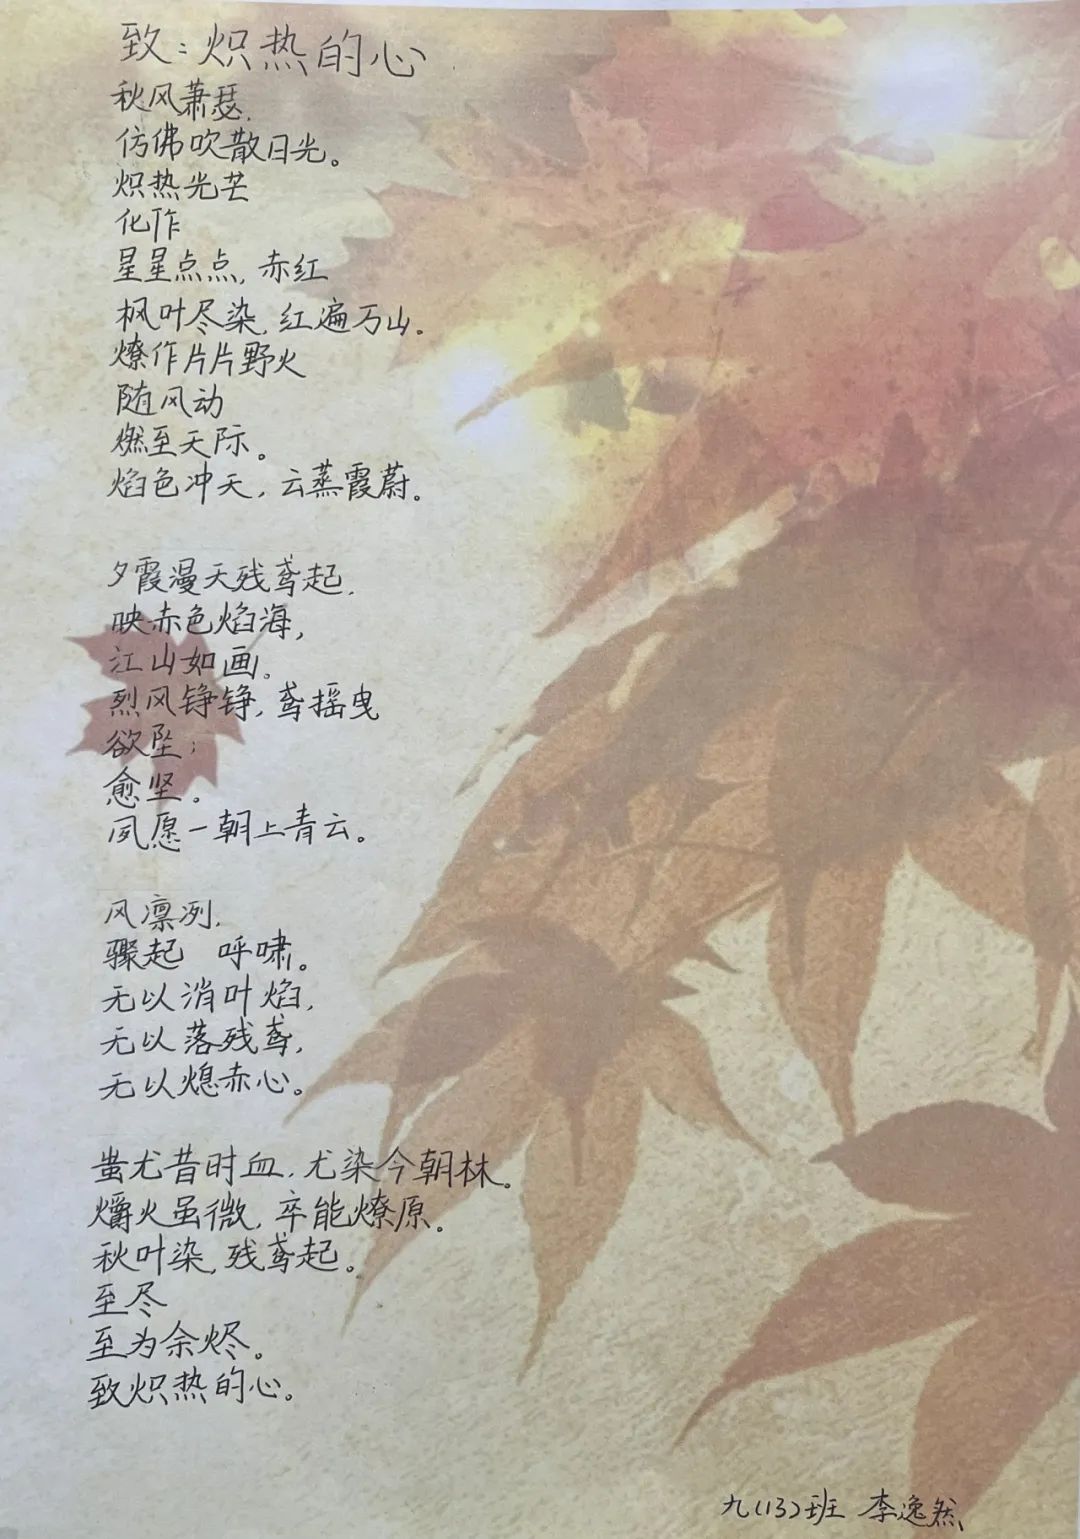 致:炽热的心
秋风萧瑟,
仿佛吹散日光。
炽热光芒
化作
星星点点,赤红
枫叶尽染,红遍万山。
燎作片片野火
随风动
燃至天际。
焰色冲天,云蒸霞蔚。
夕霞漫天残鸢起,
映赤色焰海,
江山如画。
烈风铮铮,鸢摇曳
欲坠;
愈坚。
夙愿一朝上青云。
风凛冽,
骤起 呼啸。
无以消叶焰,
无以落残鸢,
无以熄赤心。
蚩尤昔时血,尤染今朝林。
爝火虽微,卒能燎原。
秋叶染,残鸢起。
至尽
至为余烬。
致炽热的心。
九(13)班 李逸然